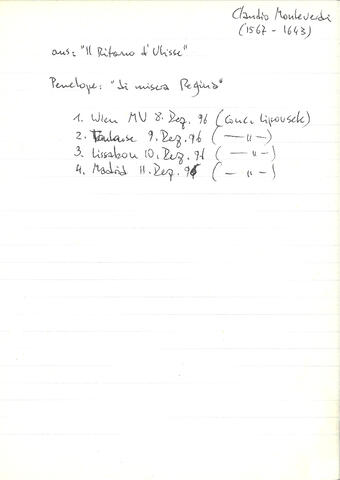 Claudio Monteverdi
(1567 - 1643)
aus: "Il Ritorno d'Ulisse"
Penelope: "di misera Regina"
1. Wien MV 8. Dez. 96 (Conc. Lipovsek)
2. Toulouse 9. Dez. 96 ( — " — )
3. Lissabon 10. Dez. 96 ( — " — )
4. Madrid 11. Dez. 96 ( — " — )